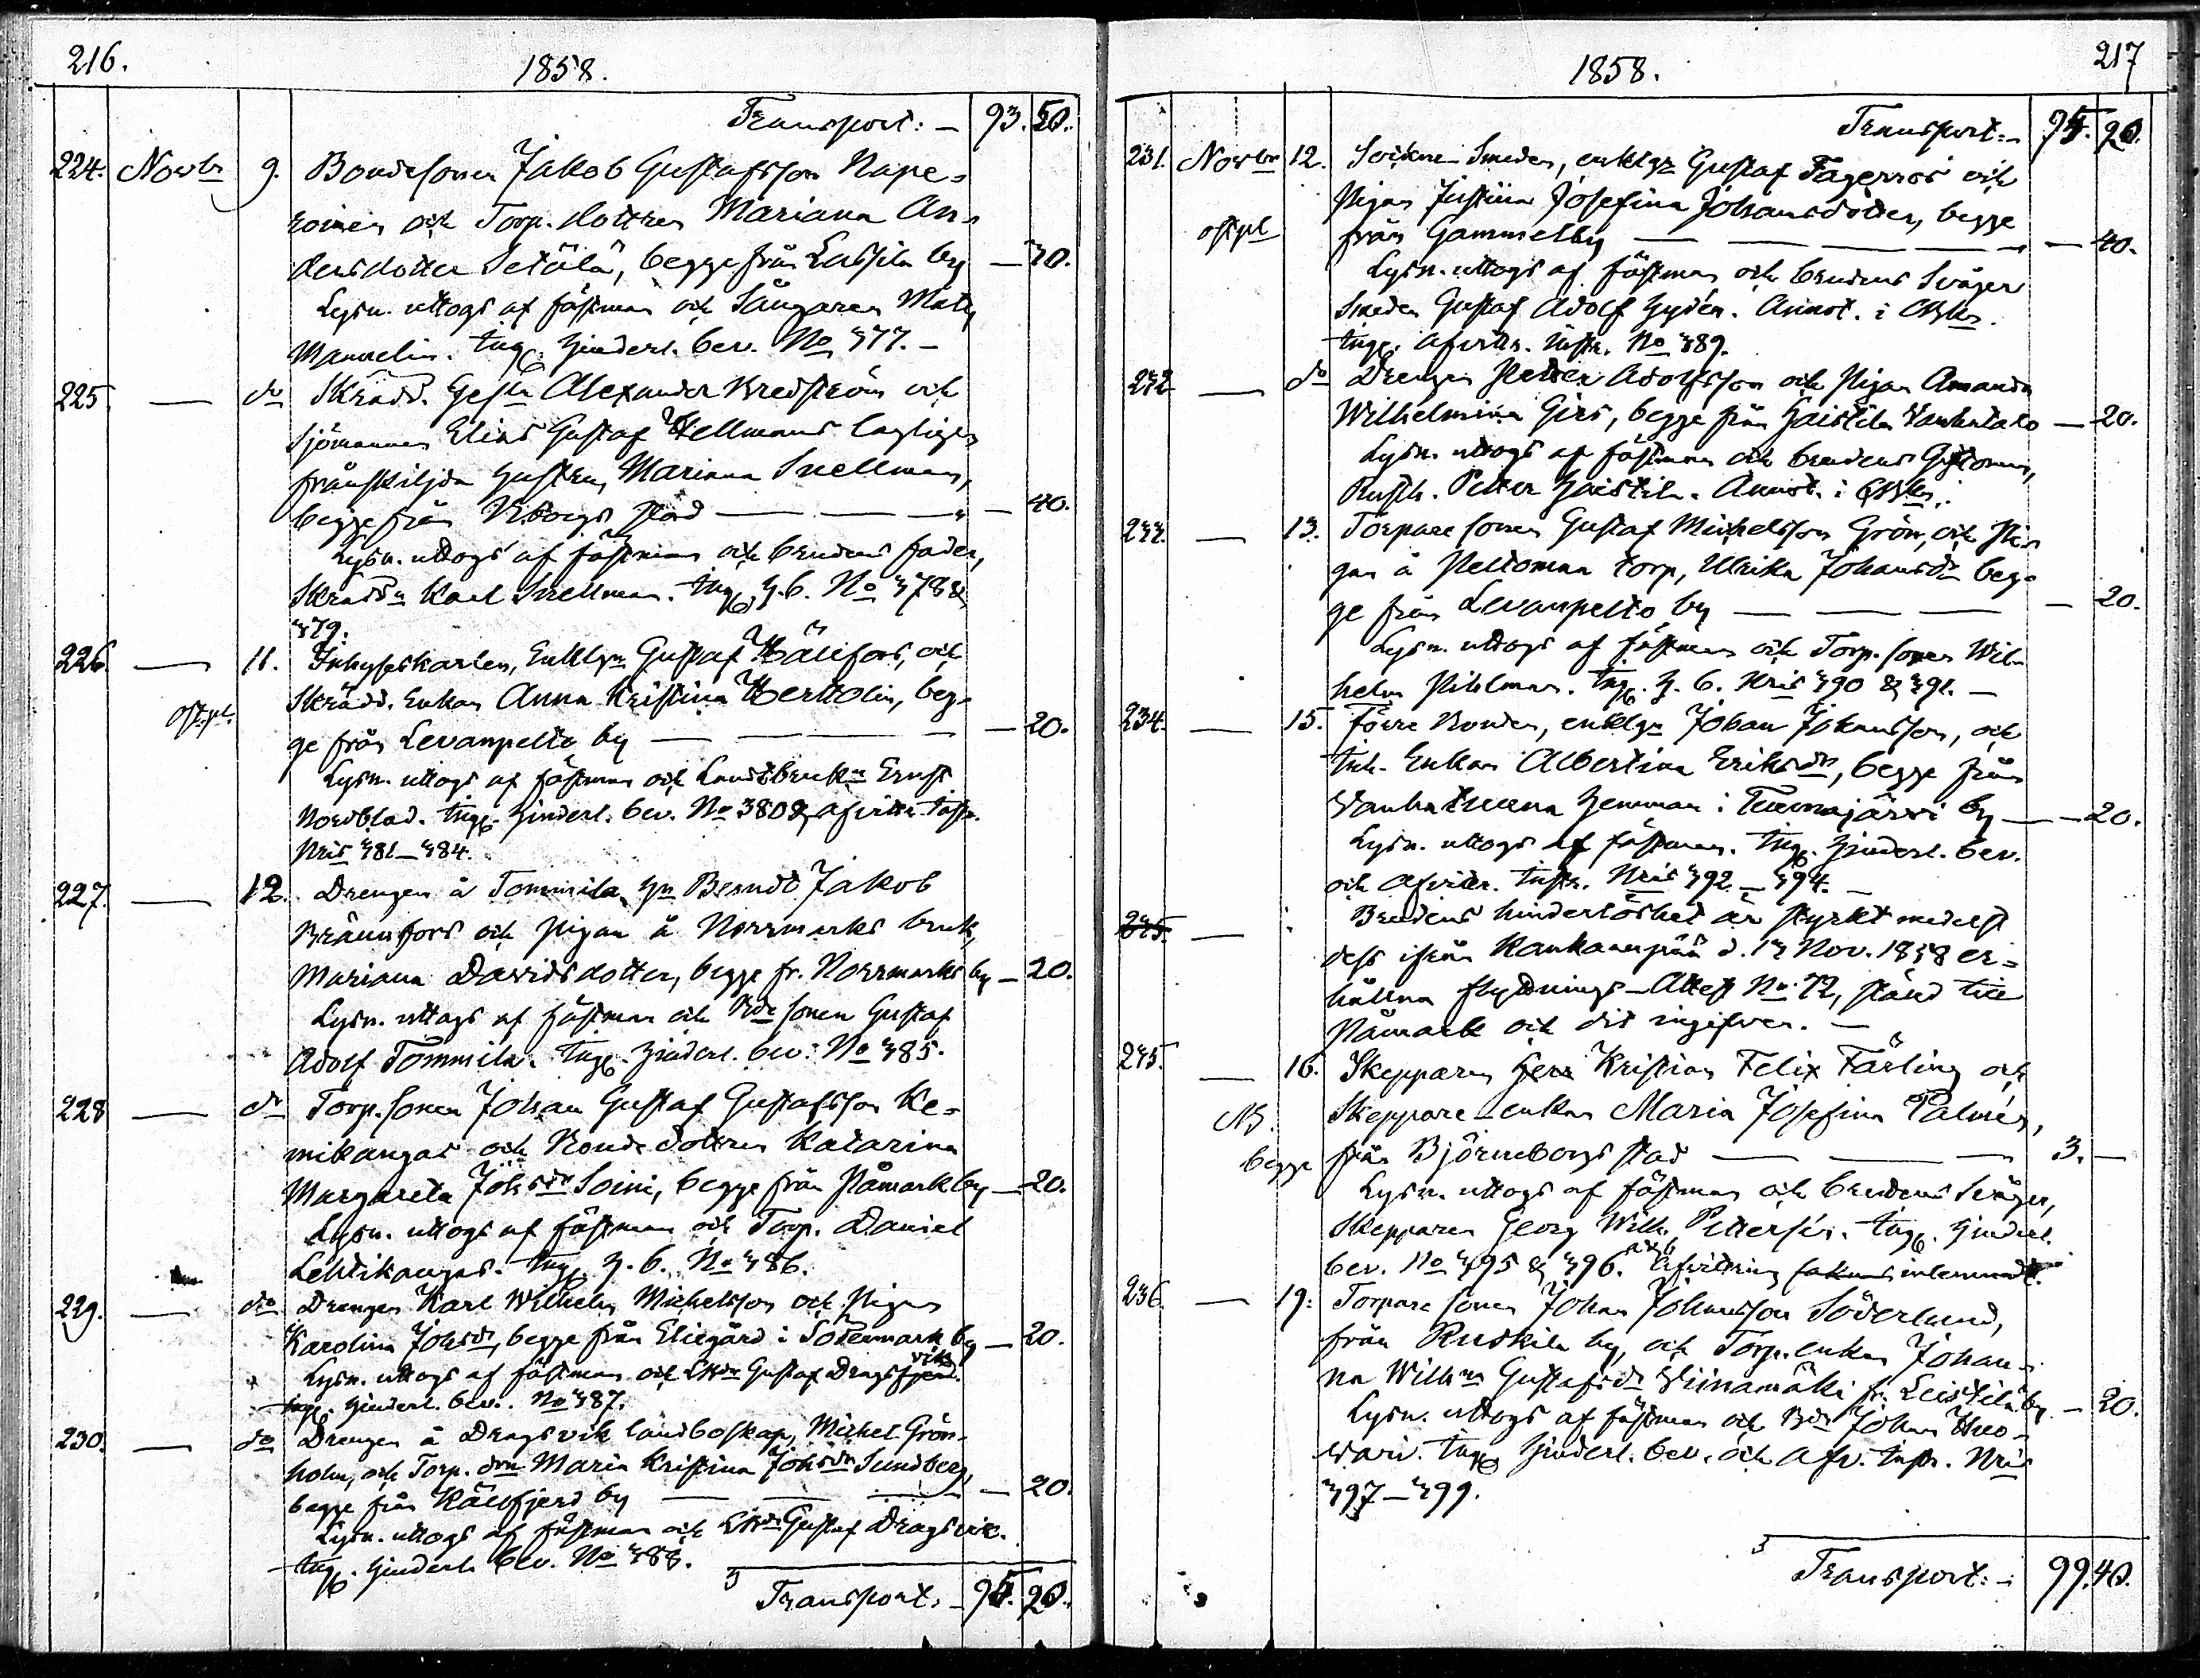 216.
1858.
Transport: — 93. 50.
224. Novbr 9. Bondesonen Jakob Gustafsson Nape-
roinen och Torp. dottren Mariana An-
dersdotter Setälä, begge från Lassila by — 30.
Lysn. uttogs af fästman och Sångaren Matts
Mannelin. Ingg. hinderl. bev. No 377. —
225. — do Skrädd. Gesn Alexander Bredström och
Sjömannen Elias Gustaf Hellmans lagligen
frånskiljda hustru, Mariana Snellman,
begge från Åbogs stad — — — 40.
Lysn. uttogs af fästman och brudens fader,
Skräddn Karl Snellman. Ingg. h. b. No 378 &
379.
226. — 11. Inhyseskarlen, Enklgn Gustaf Hällfors, och
ofstpl. Skrädd. Enkan Anna Kristina Herttolin, beg-
ge från Levanpelto by — — — 20.
Lysn. uttogs af fästman och Landtbrukn Ernst
Nordblad. Ingg. hinderl. bev. No 380 & afvittr. instr.
Nris 381—384.
227. — 12. Drengen å Tommila, hn Berndt Jakob
Brännfors och Pigan å Norrmarks bruk,
Mariana Davidsdotter, begge fr. Norrmarks by — 20.
Lysn. uttogs af fästman och Bde sonen Gustaf
Adolf Tommila. Ingg. hinderl. bev. No 385.
228 — do Torp. sonen Johan Gustaf Gustafsson Ke-
mikangas och Bonde dottren Katarina
Margareta Johsdr Soini, begge från Påmark by — 20.
Lysn. uttogs af fästman och Torp. Daniel
Lehtikangas. Ingg. h. b. No 386.
229. — do Drengen Karl Wilhelm Michelsson och Pigan
Karolina Johsdr, begge från Eliegård i Södermark by — 20.
Lysn. uttogs af fästman och Gustaf Dragsvik
Ingg. hinderl. bev. No 387.
230. — do Drengen å Dragsvik landboskap, Michel Grön-
holm, och Torp. drn Maria Kristina Johsdr Sundberg,
begge från Källfjerd by — — — 20.
Lysn. uttogs af fästman och Gustaf Dragsvik.
Ingg. hinderl. bev. No 388.
Transport: — 95. 20.
217
1858.
Transport: — 95. 20.
231. Novbr 12. Sockne-Smeden, enklgn Gustaf Fagerros och
Pigan Justina Josefina Johansdotter, begge
ofstpl från Gammelby — — — 40.
Lysn. uttogs af fästman och brudens Svåger
Smeden Gustaf Adolf Hydén. Annot. i
Ingg. Afvittr. instr. No 389.
232 — do Drengen Petter Adolfsson och Pigan Amanda
Wilhelmina Girs, begge från Haistila Vanhatalo — 20.
Lysn. uttogs af fästman och brudens Giftoman,
Rusth. Petter Haistila. Annot. i
233. — 13. Torpare sonen Gustaf Michelsson Grön, och Pi-
gan å Peltomaa torp, Ulrika Johansdr beg-
ge från Levanpelto by — — — 20.
Lysn. uttogs af fästman och Torp. sonen Wil-
helm Pihlman. Ingg. h. b. Nris 390 & 391. —
234. — 15. Förre Bonden, enklgn Johan Johansson, och
Inh. Enkan Albertina Eriksdr, begge från
Vanhatuuna hemman i Tuunajärvi by — — 20.
Lysn. uttogs af fästman. Ingg. hinderl. bev.
och Afvittr. instr. Nris 392—394. —
235. — Brudens hinderlöshet är styrkt medelst
dess ifrån Kankaanpää d. 13 Nov. 1858 er-
hållna flyttnings-Attest No 72, ställd till
Påmark och dit ingifven. —
235. — 16. Skepparen Herr Kristian Felix Färling och
NB. Skeppare-enkan Maria Josefina Palmén,
begge från Björneborgs stad — — — 3. —
Lysn. uttogs af fästman och brudens Svåger,
Skepparen Georg Wilh. Pettersén. Ingg. hinderl.
bev. No 395 & 396. Afvittring
236. — 19. Torpare sonen Johan Johansson Söderlund,
från Ruskila by, och Torp. enkan Johan-
na Wilhna Gustafsdr Viinamäki fr. Leistilä by — 20.
Lysn. uttogs af fästman och Bdn Johan Huo-
vari. Ingg. hinderl. bev. och Afv. instr. Nris
397—399.
Transport: — 99. 40.